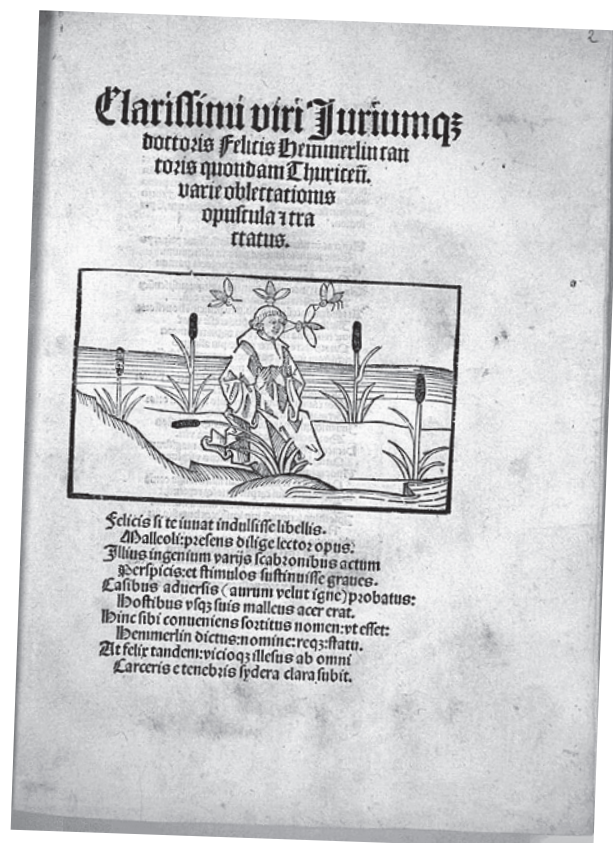 2
Clarissimi viri Juriumqꝫ
doctoris Felicis Hemmerlin can
toris quondam Thuriceñ.
varie oblectationis
opuscula ⁊ tra
ctatus.
Felicis si te iuuat indulsisse libellis.
Malleoli: presens dilige lector opus:
Illius ingenium varijs scabronibus actum
Perspicis: et stimulos sustinuisse graues.
Casibus aduersis (aurum velut igne) probatus:
Hostibus vsqꝫ suis malleus acer erat.
Hinc sibi conueniens sortitus nomen: vt esset:
Hemmerlin dictus: nomine: reqꝫ: statu.
At felix tandem: vicioqꝫ illesus ab omni
Carceris e tenebris sydera clara subit.